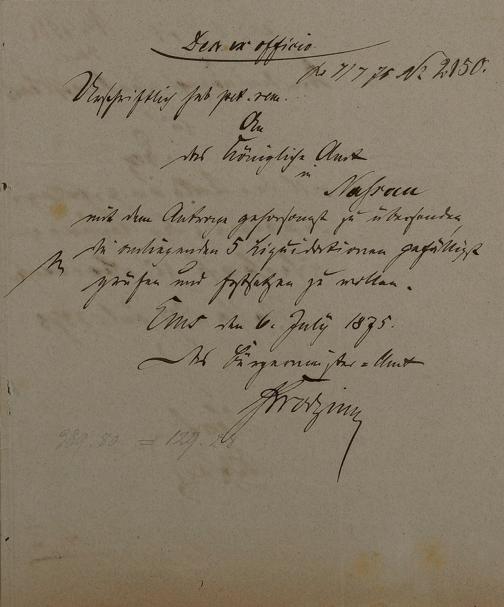 ex officio
pr 7/7 75 No 2150.
Urschriftlich sub pet. rem.
An
das Königliche Amt
in
Nassau
mit dem Antrage gehorsamst zu übersenden
die anliegenden 5 Liquidationen gefälligst
prüfen und festsetzen zu wollen.
Ems den 6. July 1875.
Das Bürgermeister=Amt